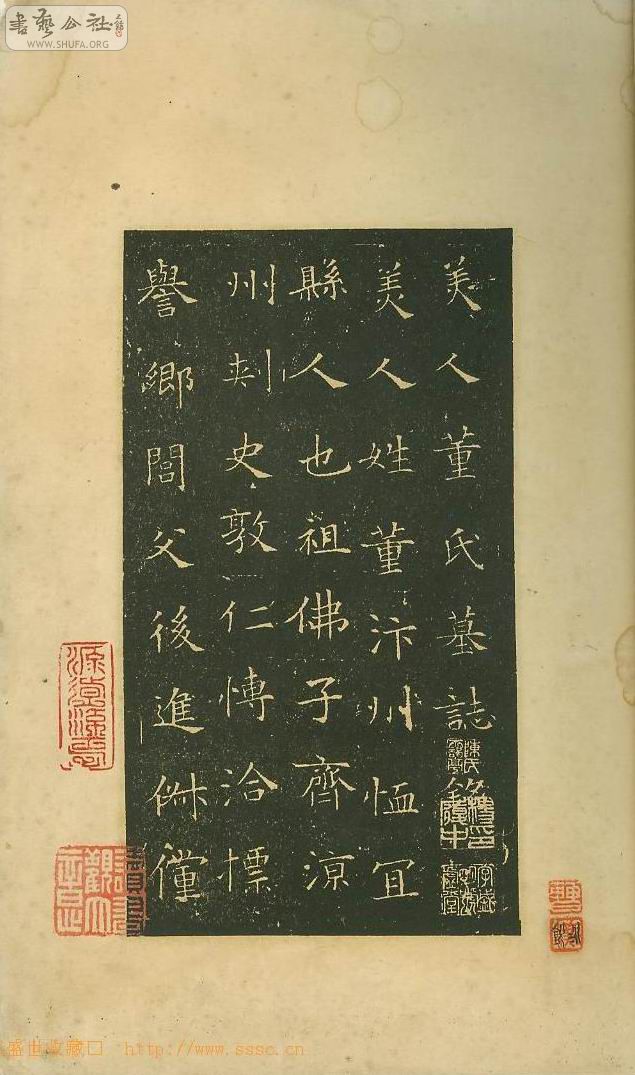 書藝公社
WWW.SHUFA.ORG
美人董氏墓誌銘
美人姓董汴州恤冝
縣人也祖佛子齊涼
州刺史敦仁博洽摽
譽鄉閭父後進俶儻
盛世收藏 http://www.sssc.cn